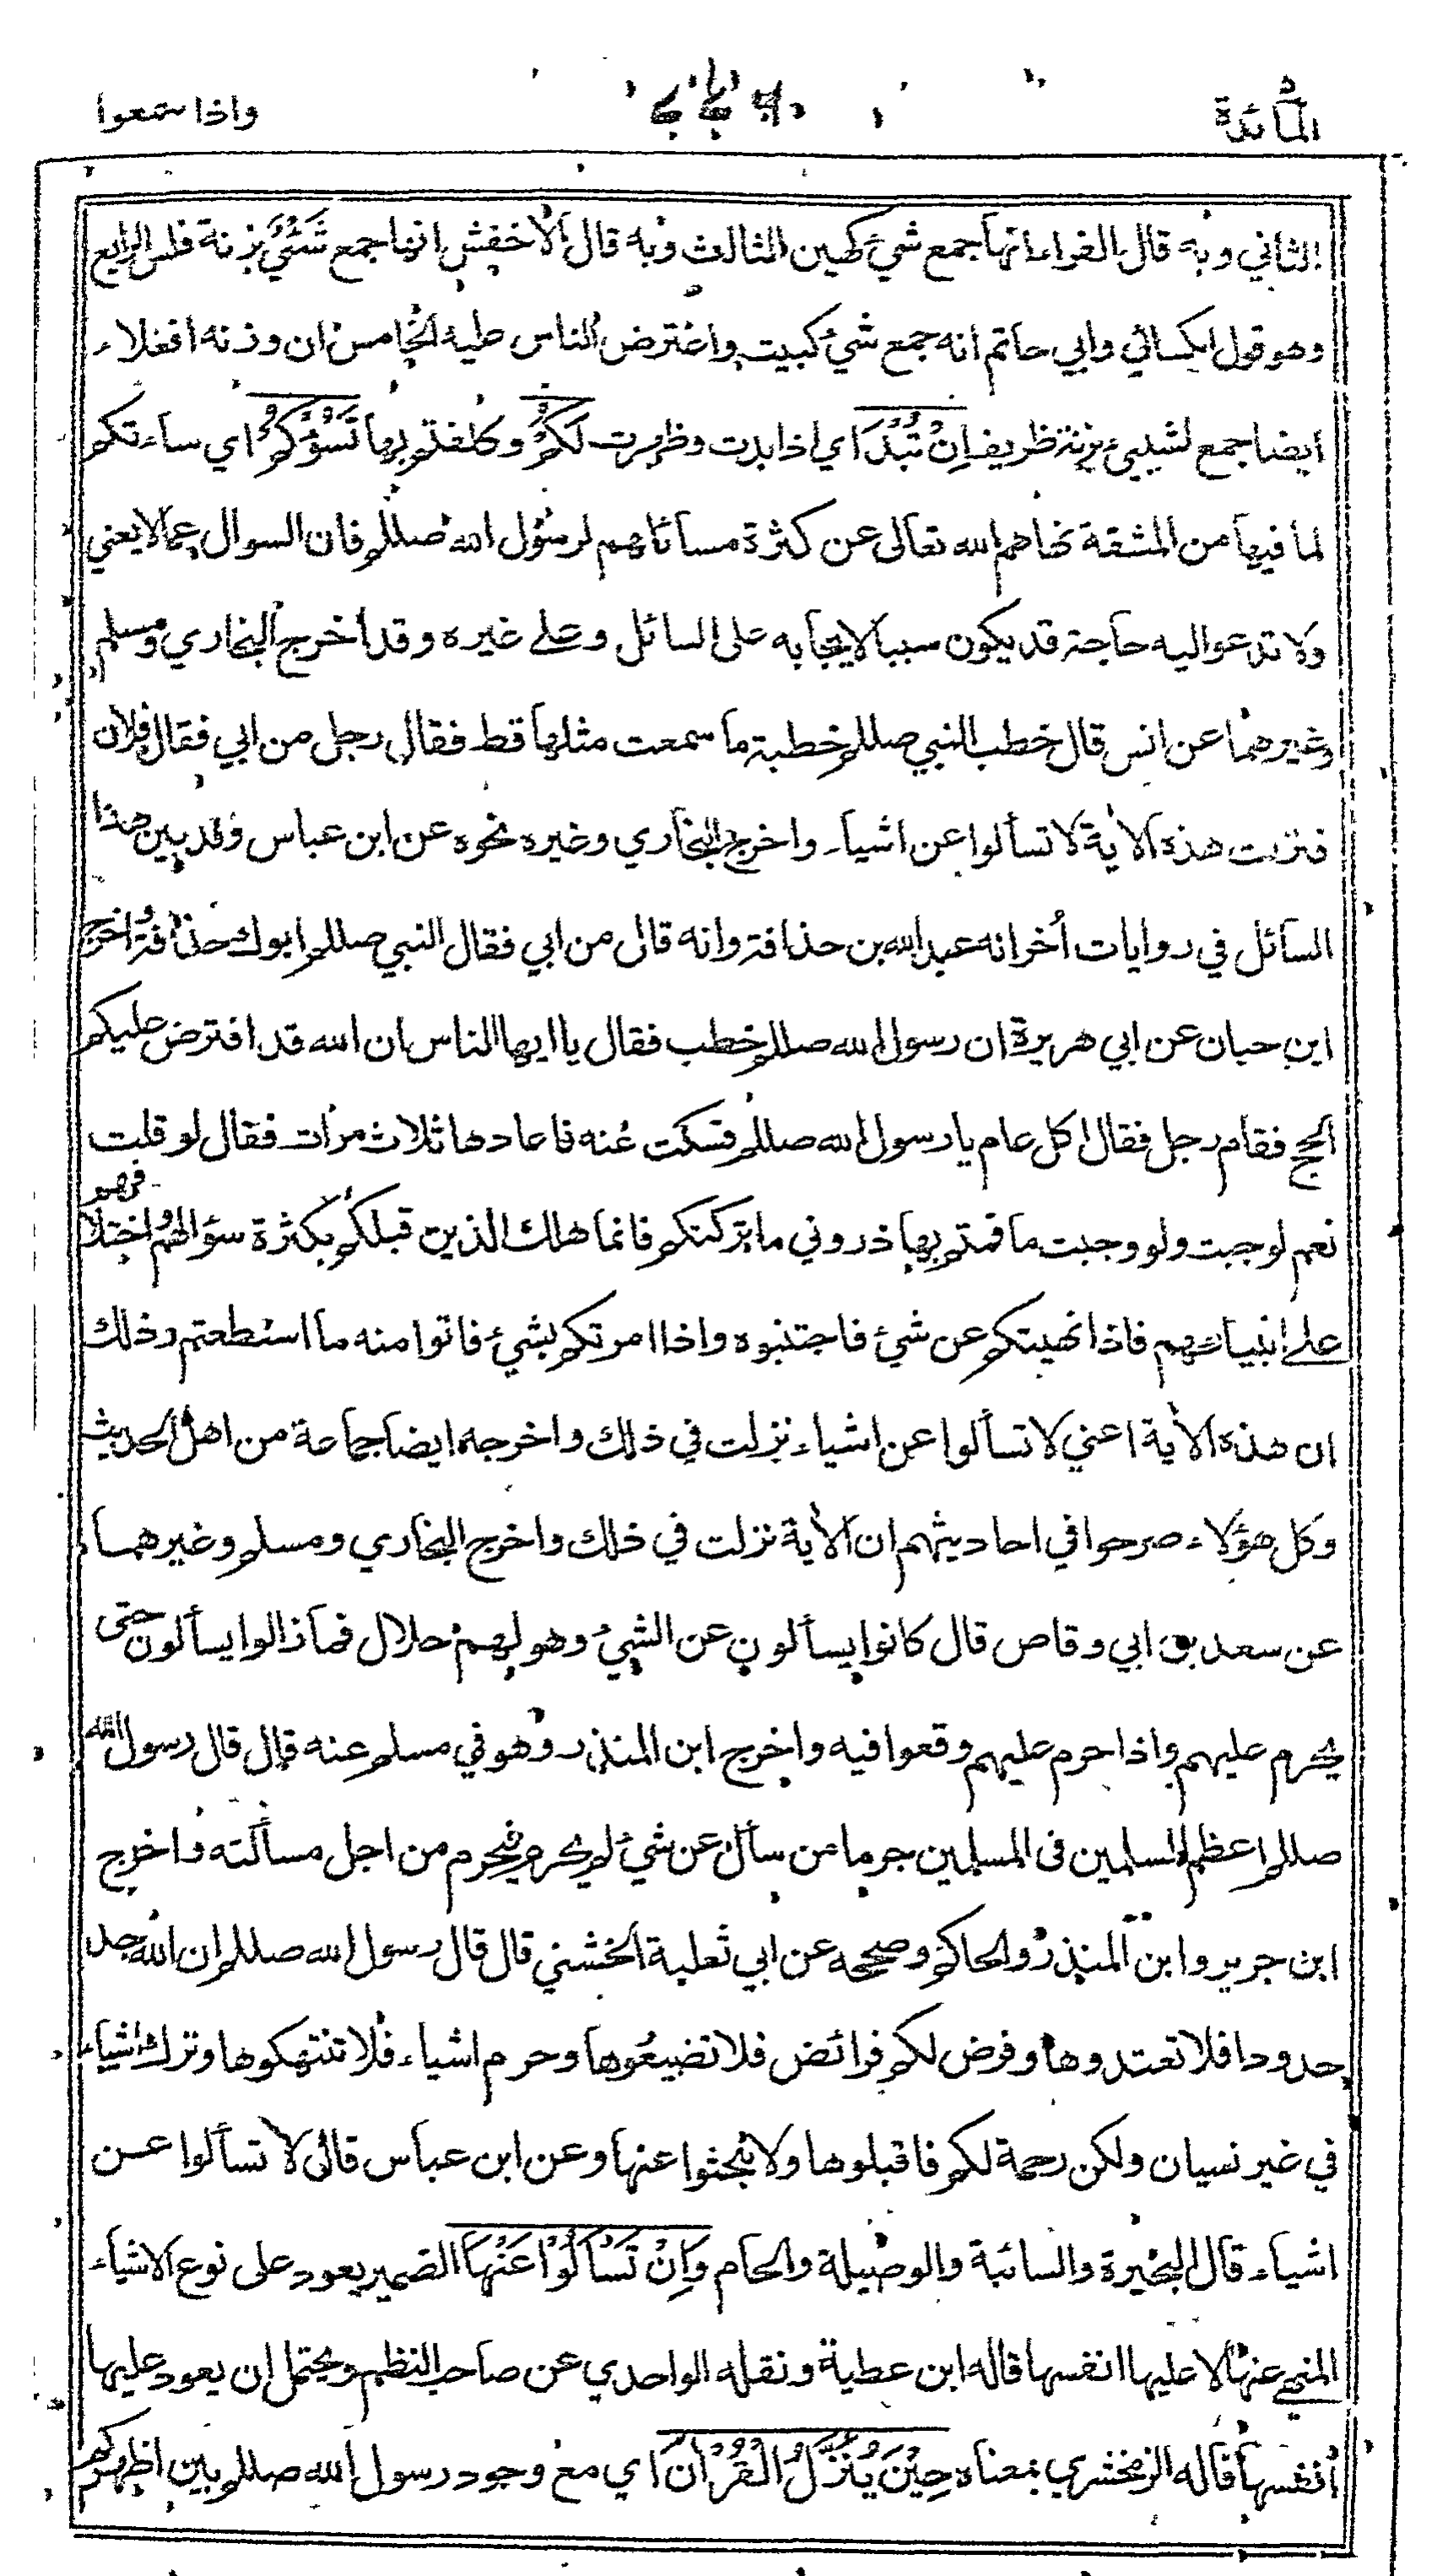 المائدة
واذا سمعوا
الثاني وبه قال الفراء انها جمع شيء كهين الثالث وبه قال الاخفش انها جمع شَئْيٍ بزنة فلس الرابع
وهو قول الكسائي وابي حاتم انه جمع شيء كبيت واعترض الناس عليه الخامس ان وزنه افعلاء
ايضا جمع لشييء بزنة ظريف اِنْ تُبْدَ اي اذا بدت وظهرت لَكُمْ وكلفتم بها تَسُؤْكُمْ اي ساءتكم
لما فيها من المشقة نهاهم الله تعالى عن كثرة مسائلهم لرسول الله صللم فان السوال عما لا يعني
ولا تدعو اليه حاجة قد يكون سببا لايجابه على السائل وعلى غيره وقد اخرج البخاري ومسلم
وغيرهما عن انس قال خطب النبي صللم خطبة ما سمعت مثلها قط فقال رجل من ابي فقال فلان
فنزلت هذه الآية لا تسألوا عن اشياء واخرج البخاري وغيره نحوه عن ابن عباس وقد بين هذا
السائل في روايات أخر انه عبد الله بن حذافة وانه قال من ابي فقال النبي صللم ابوك حذافة واخرج
ابن حبان عن ابي هريرة ان رسول الله صللم خطب فقال يا ايها الناس ان الله قد افترض عليكم
الحج فقام رجل فقال اكل عام يا رسول الله صللم فسكت عنه فاعادها ثلاث مرات فقال لو قلت
نعم لوجبت ولو وجبت ما قمتم بها ذروني ما تركتكم فانما هلك الذين قبلكم بكثرة سؤالهم واختلافهم
على انبيائهم فاذا نهيتكم عن شيء فاجتنبوه واذا امرتكم بشيء فاتوا منه ما استطعتم وذلك
ان هذه الآية اعني لا تسألوا عن اشياء نزلت في ذلك واخرجه ايضا جماعة من اهل الحديث
وكل هؤلاء صرحوا في احاديثهم ان الآية نزلت في ذلك واخرج البخاري ومسلم وغيرهما
عن سعد بن ابي وقاص قال كانوا يسألون عن الشيء وهو لهم حلال فما زالوا يسألون حتى
يحرم عليهم واذا حرم عليهم وقعوا فيه واخرج ابن المنذر وهو في مسلم عنه قال قال رسول الله
صللم اعظم المسلمين فى المسلمين جرما من سأل عن شيء لم يحرم فيحرم من اجل مسألته واخرج
ابن جرير وابن المنذر والحاكم وصححه عن ابي ثعلبة الخشني قال قال رسول الله صللم ان الله حد
حدودا فلا تعتدوها وفرض لكم فرائض فلا تضيعوها وحرم اشياء فلا تنتهكوها وترك اشياء
في غير نسيان ولكن رحمة لكم فاقبلوها ولا تبحثوا عنها وعن ابن عباس قال لا تسألوا عن
اشياء قال البحيرة والسائبة والوصيلة والحام وَاِنْ تَسْأَلُوْا عَنْهَا الضمير يعود على نوع الاشياء
المنهي عنها لا عليها انفسها قاله ابن عطية ونقله الواحدي عن صاحب النظم ويحتمل ان يعود عليها
أنفسها قاله الزمخشري بمعناه حِيْنَ يُنَزَّلُ الْقُرْآنُ اي مع وجود رسول الله صللم بين اظهركم